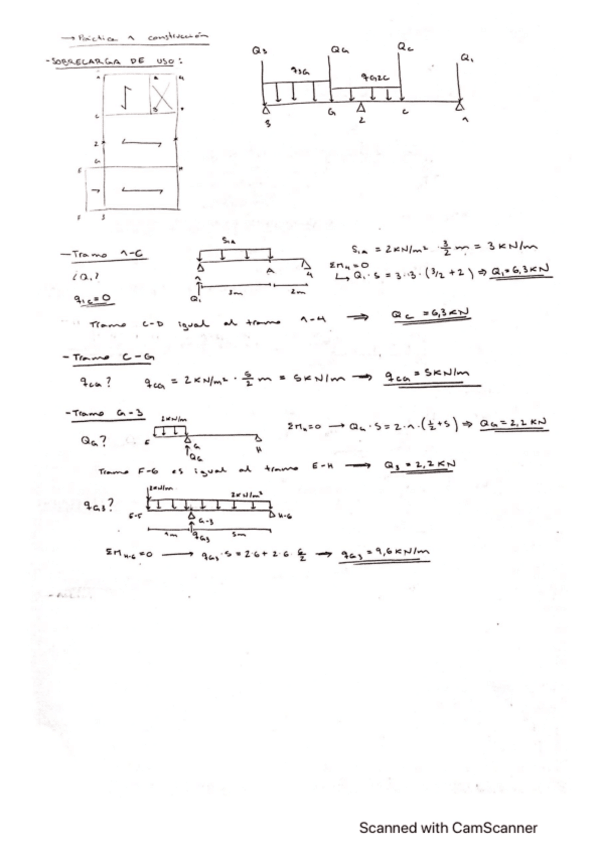 → Práctica 1 construcción
- SOBRECARGA DE USO:
Q3 QG Qc Q1
q3G qG2C
3 G 2 C 1
- Tramo 1-C
¿Q1?
q1c=0
S1A
1 A 4
Q1
3m 2m
S1A = 2KN/m² · 3/2 m = 3 KN/m
ΣM4=0
↳ Q1·5 = 3·3·(3/2+2) ⇒ Q1=6,3KN
Tramo C-D igual al tramo 1-4 → Qc = 6,3KN
- Tramo C-G
qCG? qCG = 2 KN/m² · 5/2 m = 5KN/m → qCG = 5KN/m
- Tramo G-3
QG?
2KN/m
E G H
QG
ΣMH=0 → QG·5 = 2·1·(1/2+5) ⇒ QG=2,2KN
Tramo F-G es igual al tramo E-H → Q3 = 2,2KN
qG3?
2KN/m 2KN/m²
E-F G-3 H-6
1m qG3 5m
ΣMH-6=0 → qG3·5=2·6+2·6·6/2 → qG3=9,6KN/m
Scanned with CamScanner